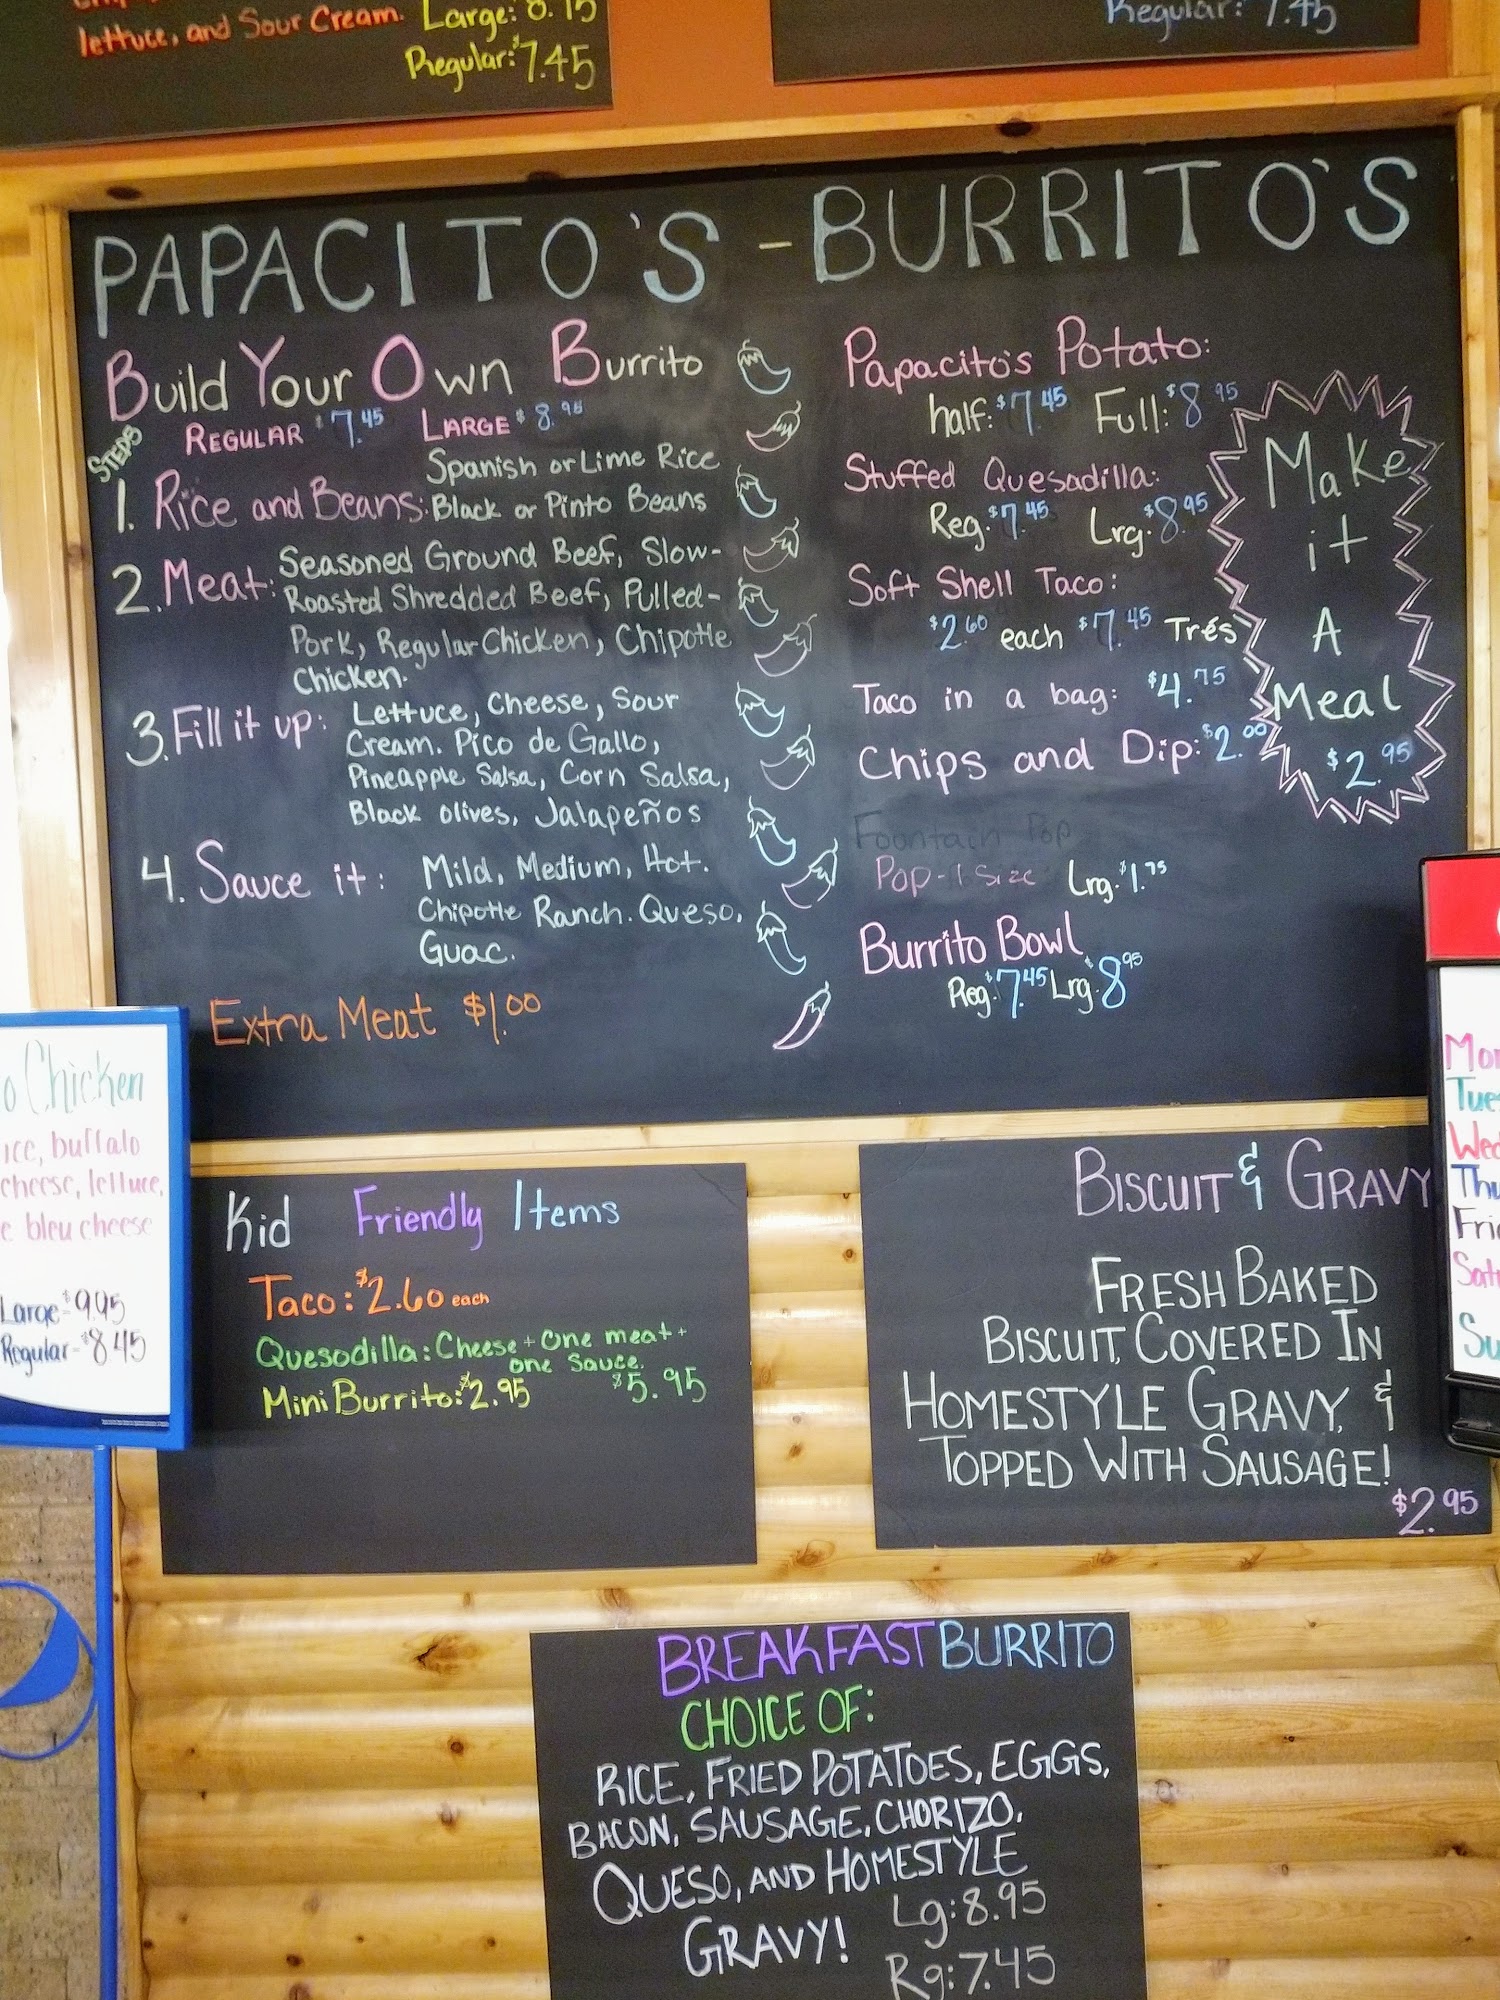 lettuce, and Sour Cream.
Large: 8.75
Regular: $7.45
Regular: 7.45
PAPACITO'S - BURRITO'S
Build Your Own Burrito
REGULAR $7.45 LARGE $8.95
STEPS
1. Rice and Beans: Spanish or Lime Rice
Black or Pinto Beans
2. Meat: Seasoned Ground Beef, Slow-
Roasted Shredded Beef, Pulled-
Pork, Regular Chicken, Chipotle
Chicken.
3. Fill it up: Lettuce, Cheese, Sour
Cream. Pico de Gallo,
Pineapple Salsa, Corn Salsa,
Black olives, Jalapeños
4. Sauce it: Mild, Medium, Hot.
Chipotle Ranch. Queso,
Guac.
Extra Meat $1.00
Papacito's Potato:
half: $7.45 Full: $8.95
Stuffed Quesadilla:
Reg. $7.45 Lrg. $8.95
Soft Shell Taco:
$2.60 each $7.45 Trés
Taco in a bag: $4.75
Chips and Dip: $2.00
Fountain Pop
Pop-1 Size Lrg. $1.75
Burrito Bowl
Reg. $7.45 Lrg. $8.95
Make
it
A
Meal
$2.95
Chicken
buffalo
cheese, lettuce,
bleu cheese
Large-$9.95
Regular-$8.45
Kid Friendly Items
Taco: $2.60 each
Quesodilla: Cheese + One meat +
one sauce.
$5.95
Mini Burrito: $2.95
BISCUIT & GRAVY
FRESH BAKED
BISCUIT, COVERED IN
HOMESTYLE GRAVY, &
TOPPED WITH SAUSAGE!
$2.95
Mon
Tue
Wed
Thu
Fri
Sat
Su
BREAKFAST BURRITO
CHOICE OF:
RICE, FRIED POTATOES, EGGS,
BACON, SAUSAGE, CHORIZO,
QUESO, AND HOMESTYLE
GRAVY!
Lg: 8.95
Rg: 7.45